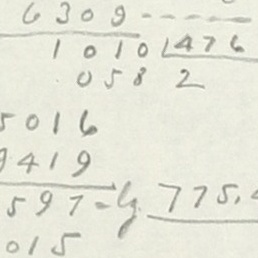 6309 - - - - -
1010 1476
058 2
5016
9419
597 = lg 775,
015